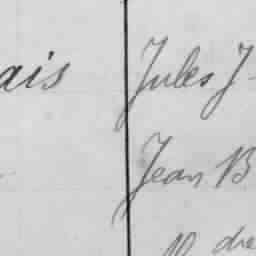 ais Jules J
Jean B
dre